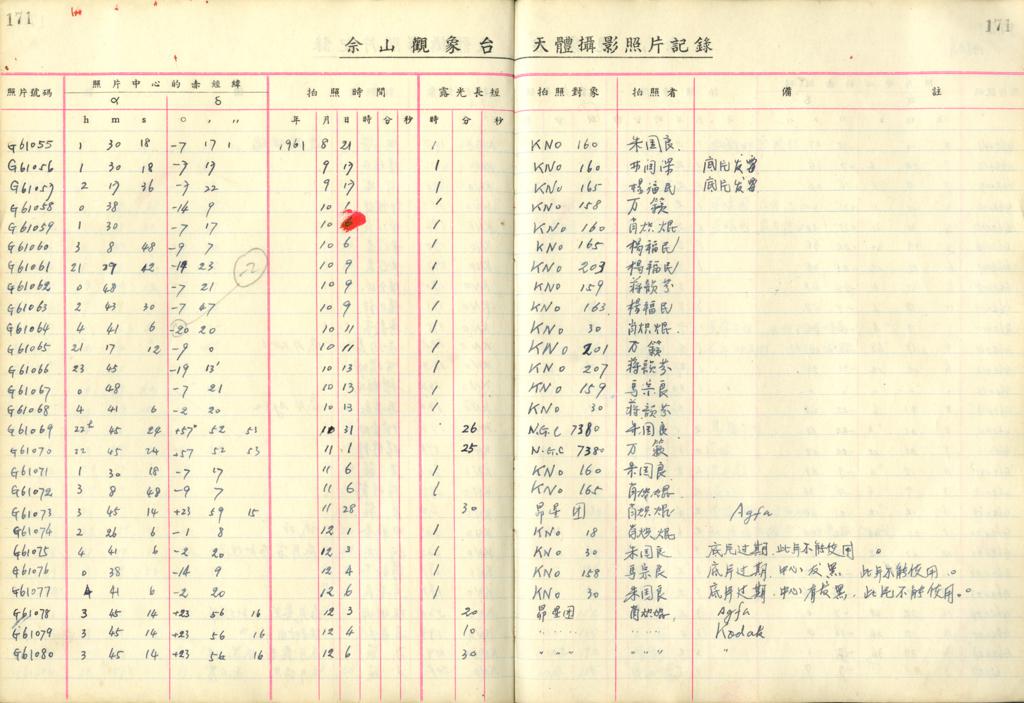 171
171
佘山觀象台 天體攝影照片記錄
照片號碼 照片中心的赤經緯 拍照時間 露光長短 拍照對象 拍照者 備註
α δ
h m s ○ ' '' 年 月 日 時 分 秒 時 分 秒
G61055 1 30 18 -7 17 1 1961 8 21 1 KNO 160 朱国良
G61056 1 30 18 -7 17 9 17 1 KNO 160 底片发雾
G61057 2 17 36 -7 22 9 17 1 KNO 165 楊福民 底片发雾
G61058 0 38 -14 9 10 1 1 KNO 158 万籁
G61059 1 30 -7 17 10 6 1 KNO 160 肖炽焜
G61060 3 8 48 -9 7 10 6 1 KNO 165 楊福民
G61061 21 29 42 -14 23 10 9 1 KNO 203 楊福民
-2
G61062 0 48 -7 21 10 9 1 KNO 159 蒋韵芬
G61063 2 43 30 -7 47 10 9 1 KNO 163 楊福民
G61064 4 41 6 -20 20 10 11 1 KNO 30 肖炽焜
G61065 21 17 12 -9 0 10 11 1 KNO 201 万籁
G61066 23 45 -19 13' 10 13 KNO 207 蒋韵芬
G61067 0 48 -7 21 10 13 1 KNO 159 馬杲良
G61068 4 41 6 -2 20 10 13 1 KNO 30 蒋韵芬
G61069 22h 45 24 +57° 52 53 10 31 26 N.G.C 7380 朱国良
G61070 22 45 24 +57 52 53 11 1 25 N.G.C 7380 万籁
G61071 1 30 18 -7 17 11 6 1 KNO 160 朱国良
G61072 3 8 48 -9 7 11 6 1 KNO 165 肖炽焜
G61073 3 45 14 +23 59 15 11 28 30 昴星团 肖炽焜 Agfa
G61074 2 26 6 -1 8 12 1 1 KNO 18 肖炽焜
G61075 4 41 6 -2 20 12 3 1 KNO 30 朱国良 底片过期.此片不能使用。
G61076 0 38 -14 9 12 4 1 KNO 158 馬杲良 底片过期.中心发黑 此片不能使用。
G61077 4 41 6 -2 20 12 6 1 KNO 30 朱国良 底片过期.中心有发黑.此片不能使用。
G61078 3 45 14 +23 56 16 12 3 20 昴星团 肖炽焜 Agfa
G61079 3 45 14 +23 56 16 12 4 10 " " " " " " " Kodak
G61080 3 45 14 +23 56 16 12 6 30 " " " " " "